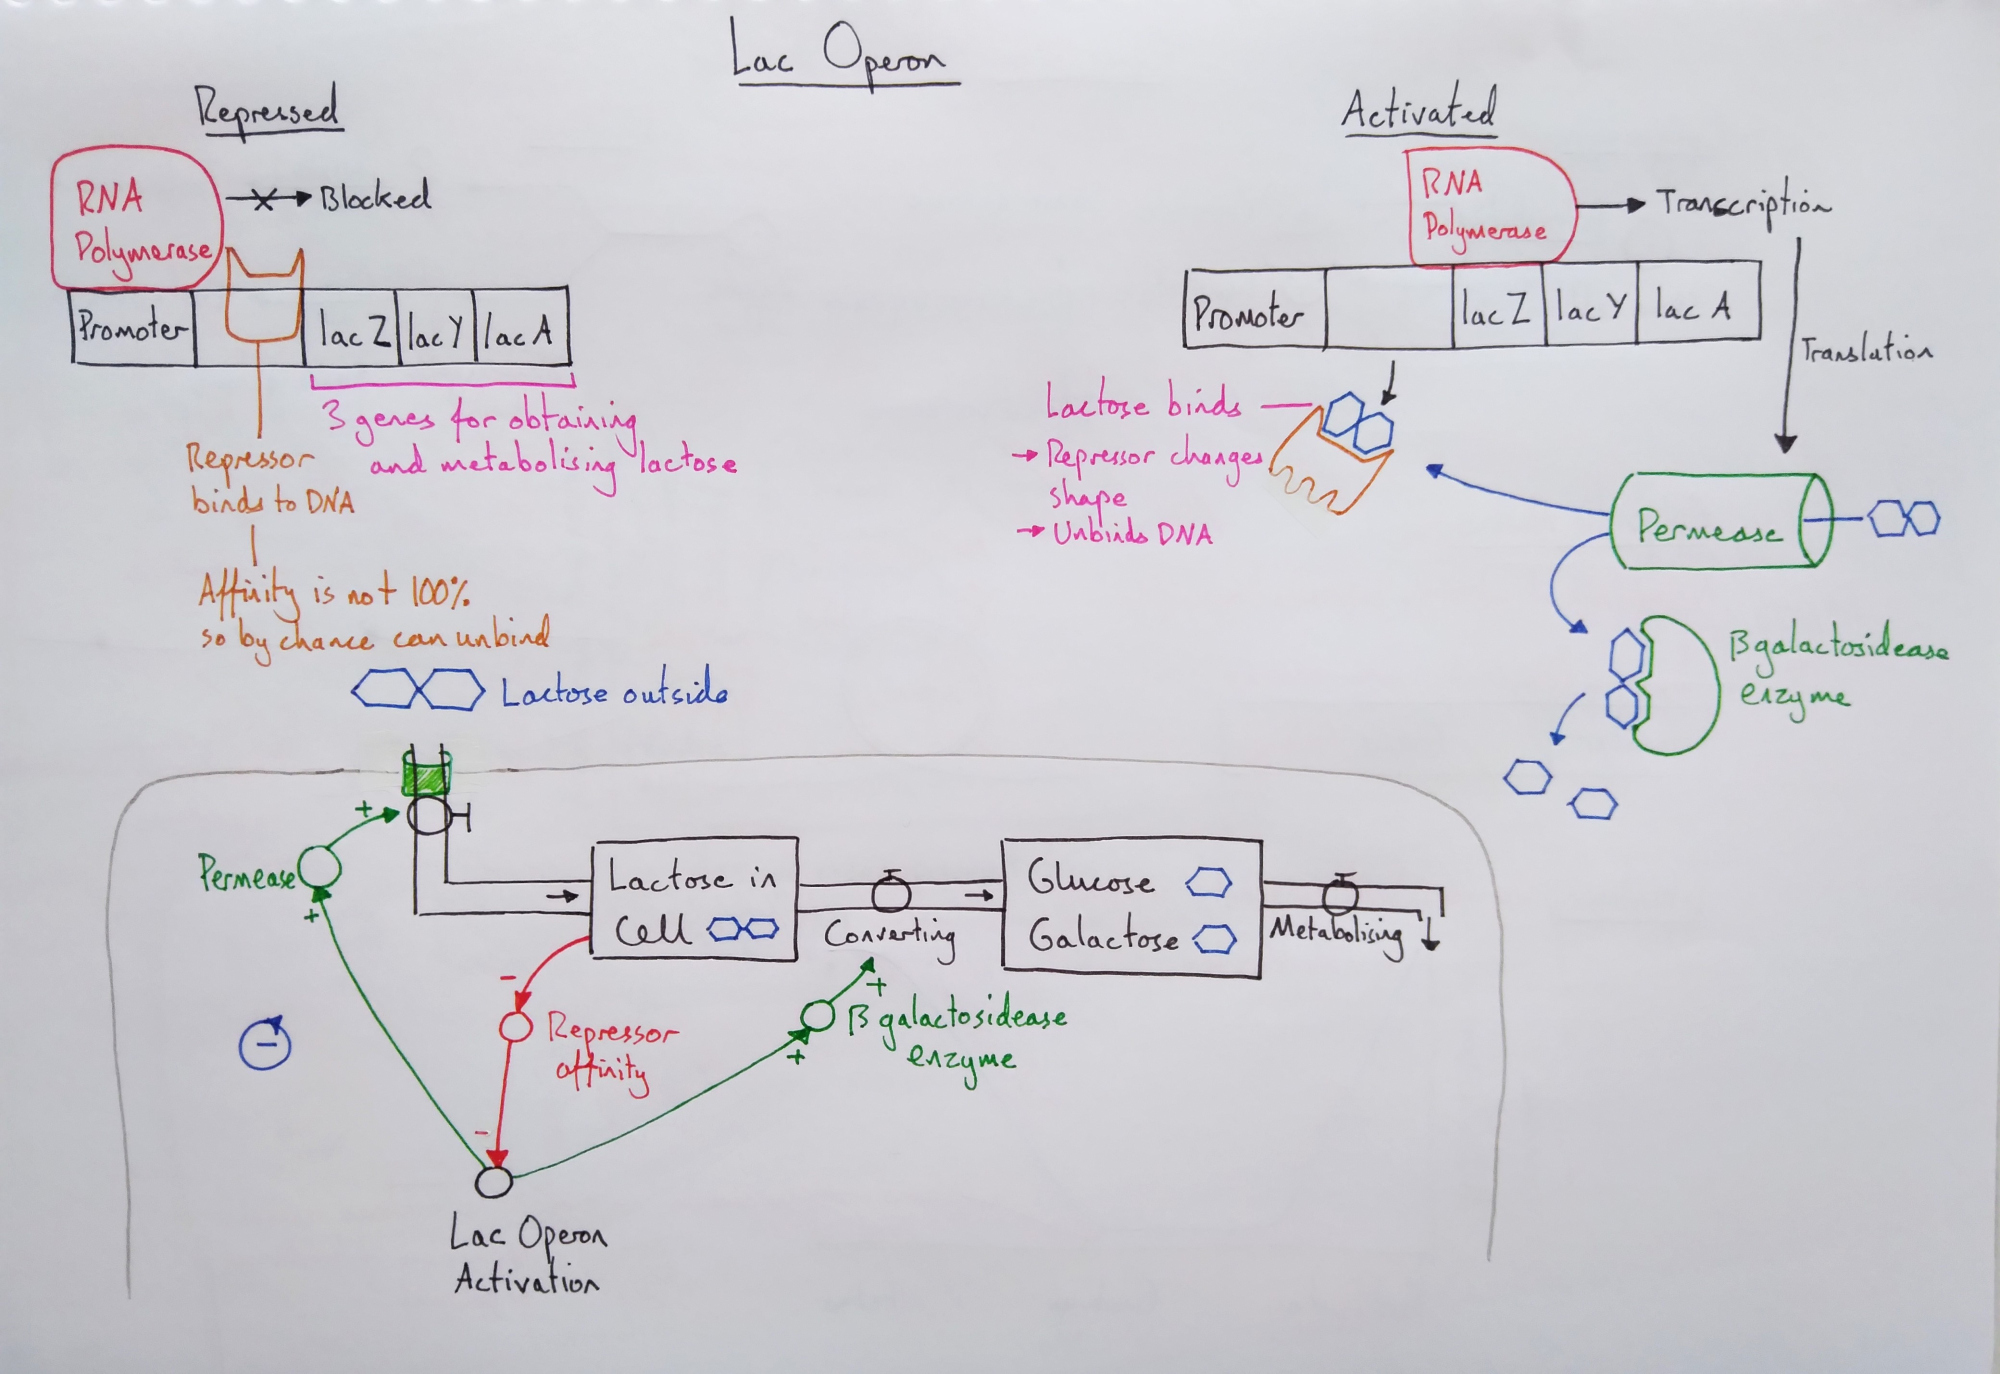 Lac Operon
Repressed
RNA
Polymerase
Blocked
Promoter
lac Z
lac Y
lac A
3 genes for obtaining
and metabolising lactose
Repressor
binds to DNA
Affinity is not 100%
so by chance can unbind
Activated
RNA
Polymerase
Transcription
Promoter
lac Z
lac Y
lac A
Translation
Lactose binds
→ Repressor changes
shape
→ Unbinds DNA
Permease
β galactosidease
enzyme
Lactose outside
Permease
+
+
Lactose in
Cell
Converting
Glucose
Galactose
Metabolising
-
Repressor
affinity
-
+
β galactosidease
enzyme
+
-
Lac Operon
Activation